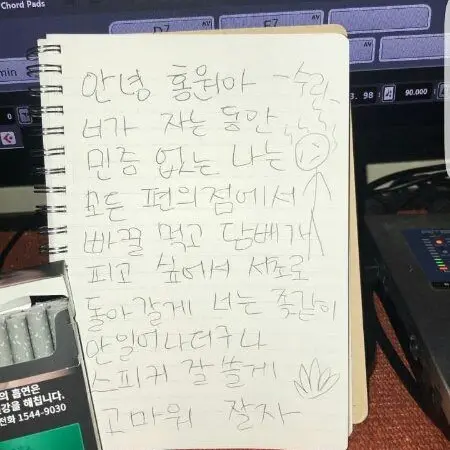 Chord Pads
D7 AV F7 AV
min
3. 98 90.000
안녕 홍원아
너가 자는 동안
민증 없는 나는
모든 편의점에서
빠꿀 먹고 담배가
피고 싶어서 서초로
돌아갈게 너는 좆같이
안일어나더구나
스피커 잘 쓸게
고마워 잘자
의 흡연은
강을 해칩니다.
전화 1544-9030